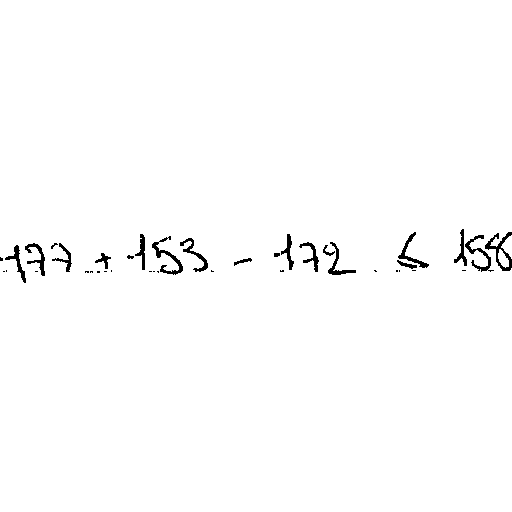 177 + 153 - 172 ≤ 158